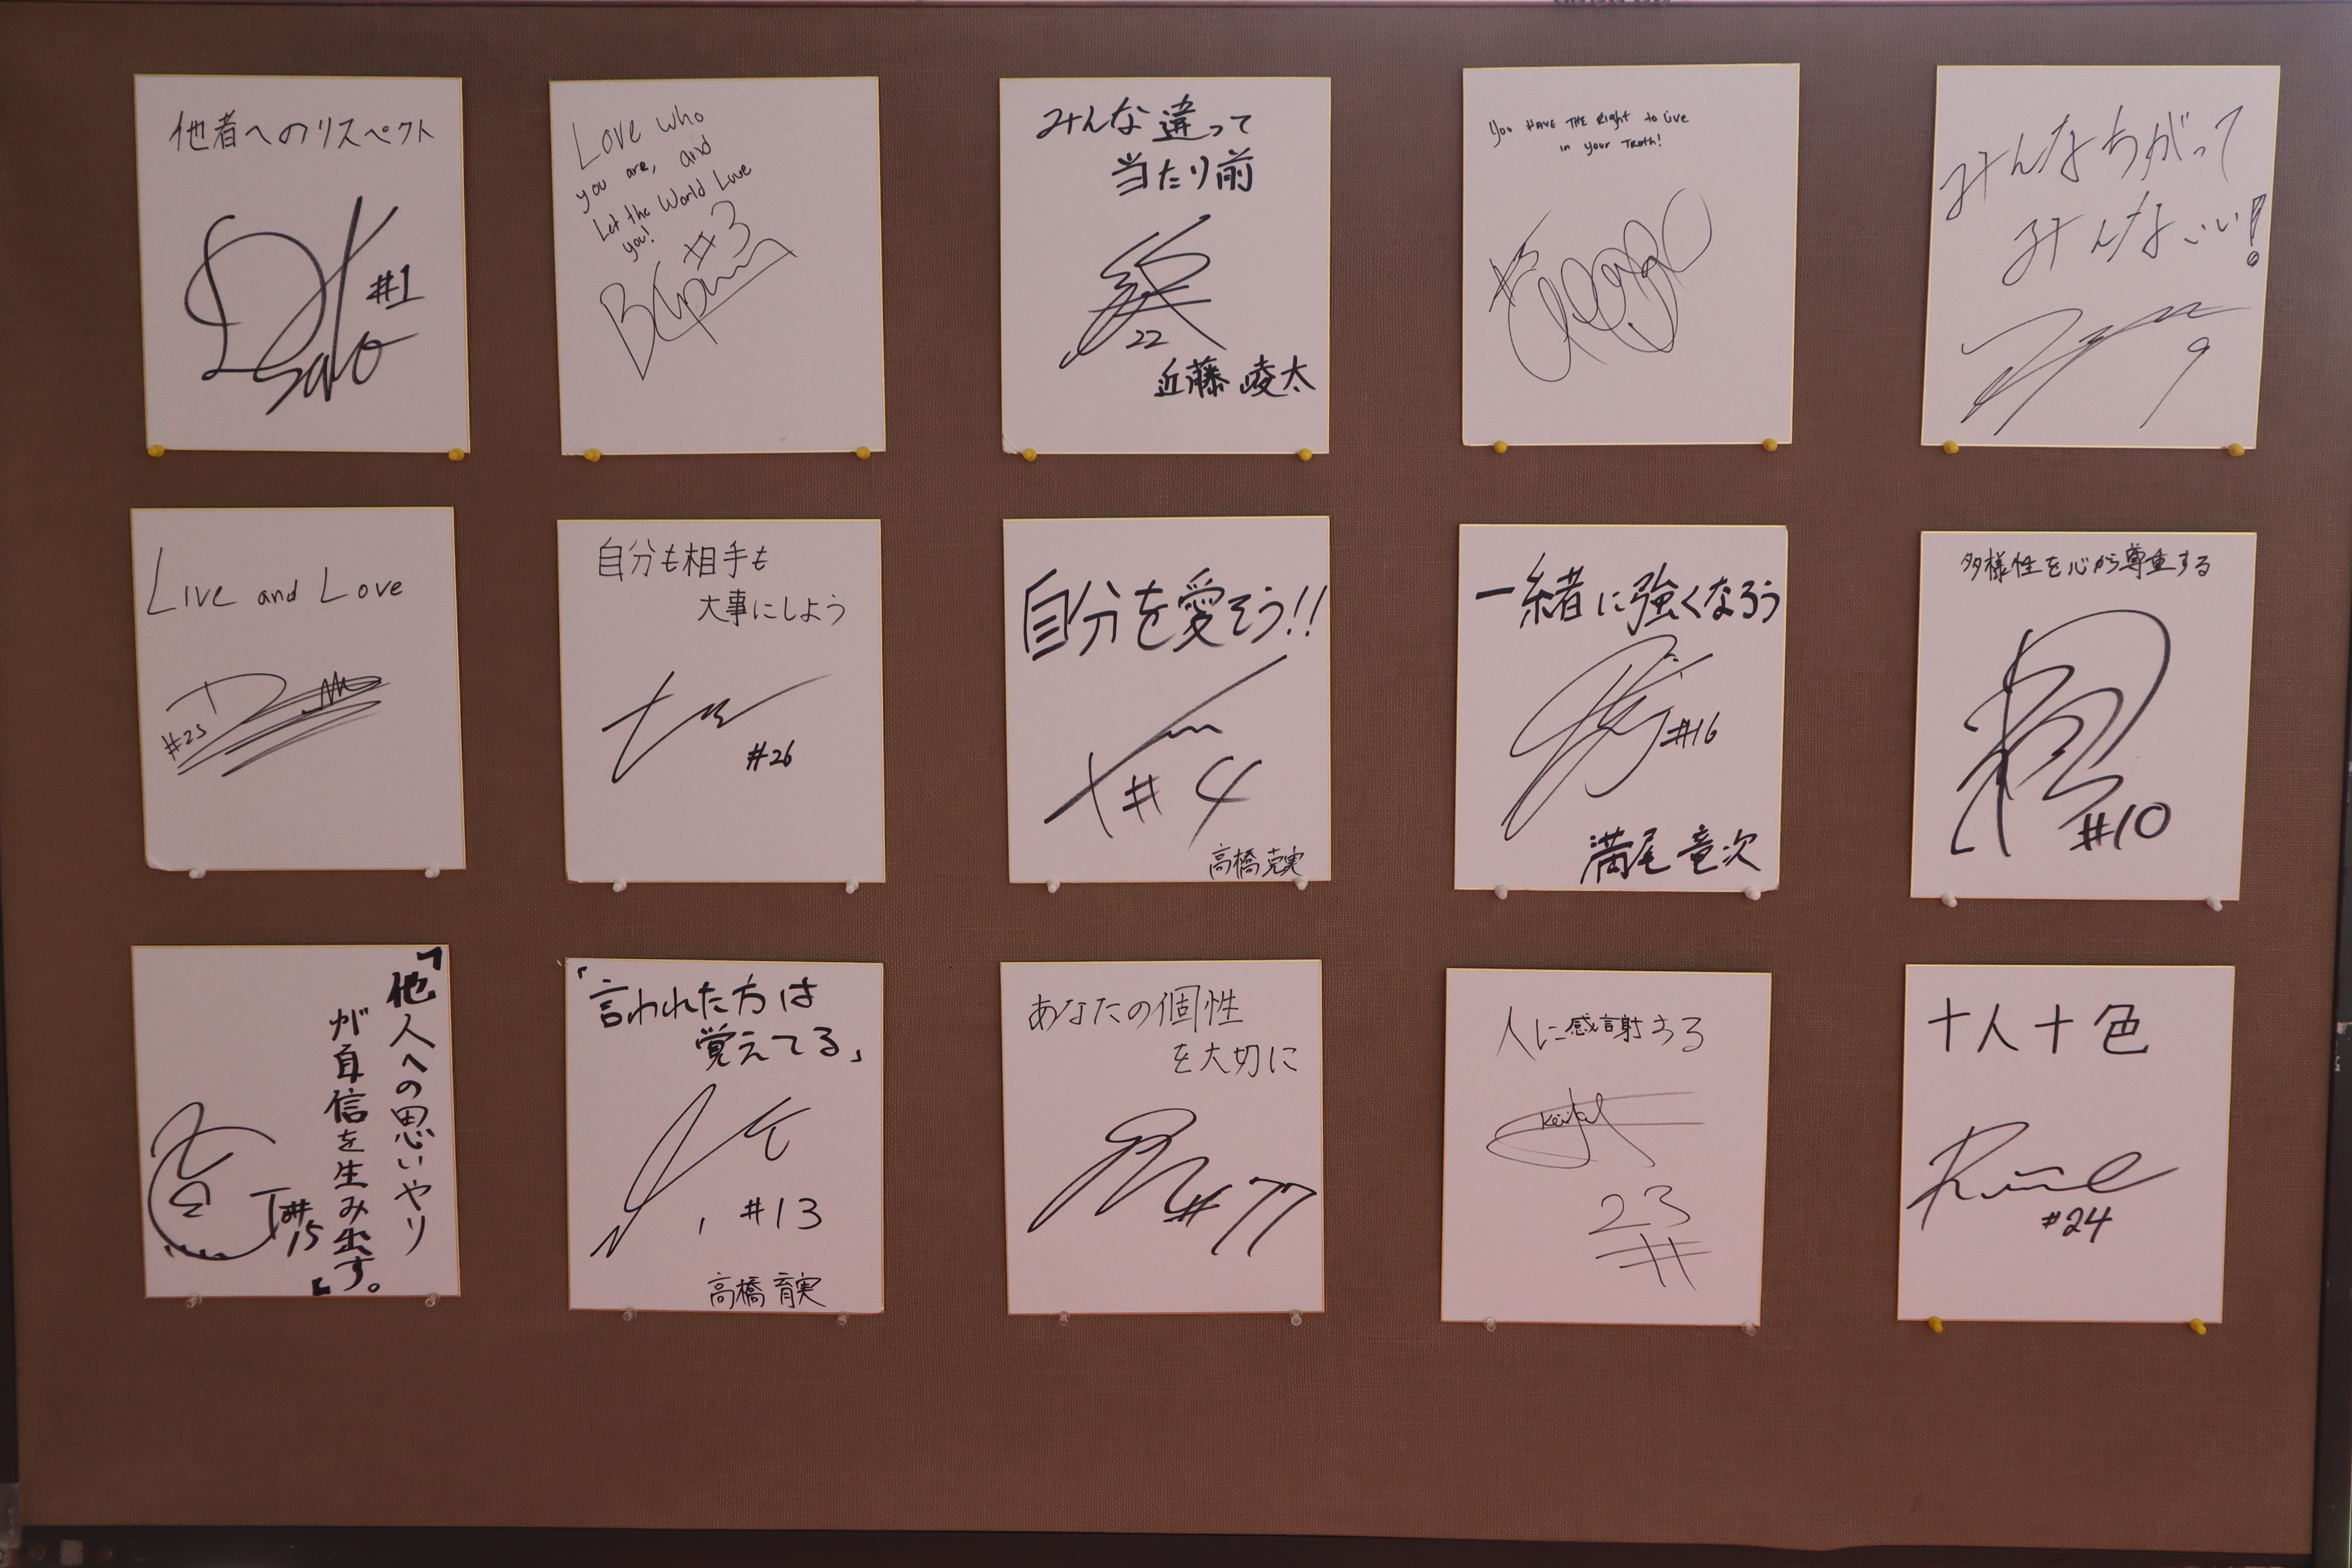 他者へのリスペクト
#1
Sato
Love who
you are, and
Let the World Love
you!
#3
みんな違って
当たり前
22
近藤 崚太
You HAVE THE Right to live
in your TRUTH!
みんなちがって
みんないい!
9
Live and Love
#25
自分も相手も
大事にしよう
#26
自分を愛そう!!
#4
高橋克実
一緒に強くなろう
#16
満尾竜次
多様性を心から尊重する
#10
「他人への思いやり
が自信を生み出す。」
#15
「言われた方は
覚えてる」
#13
高橋育実
あなたの個性
を大切に
#77
人に感謝する
23
#
十人十色
#24